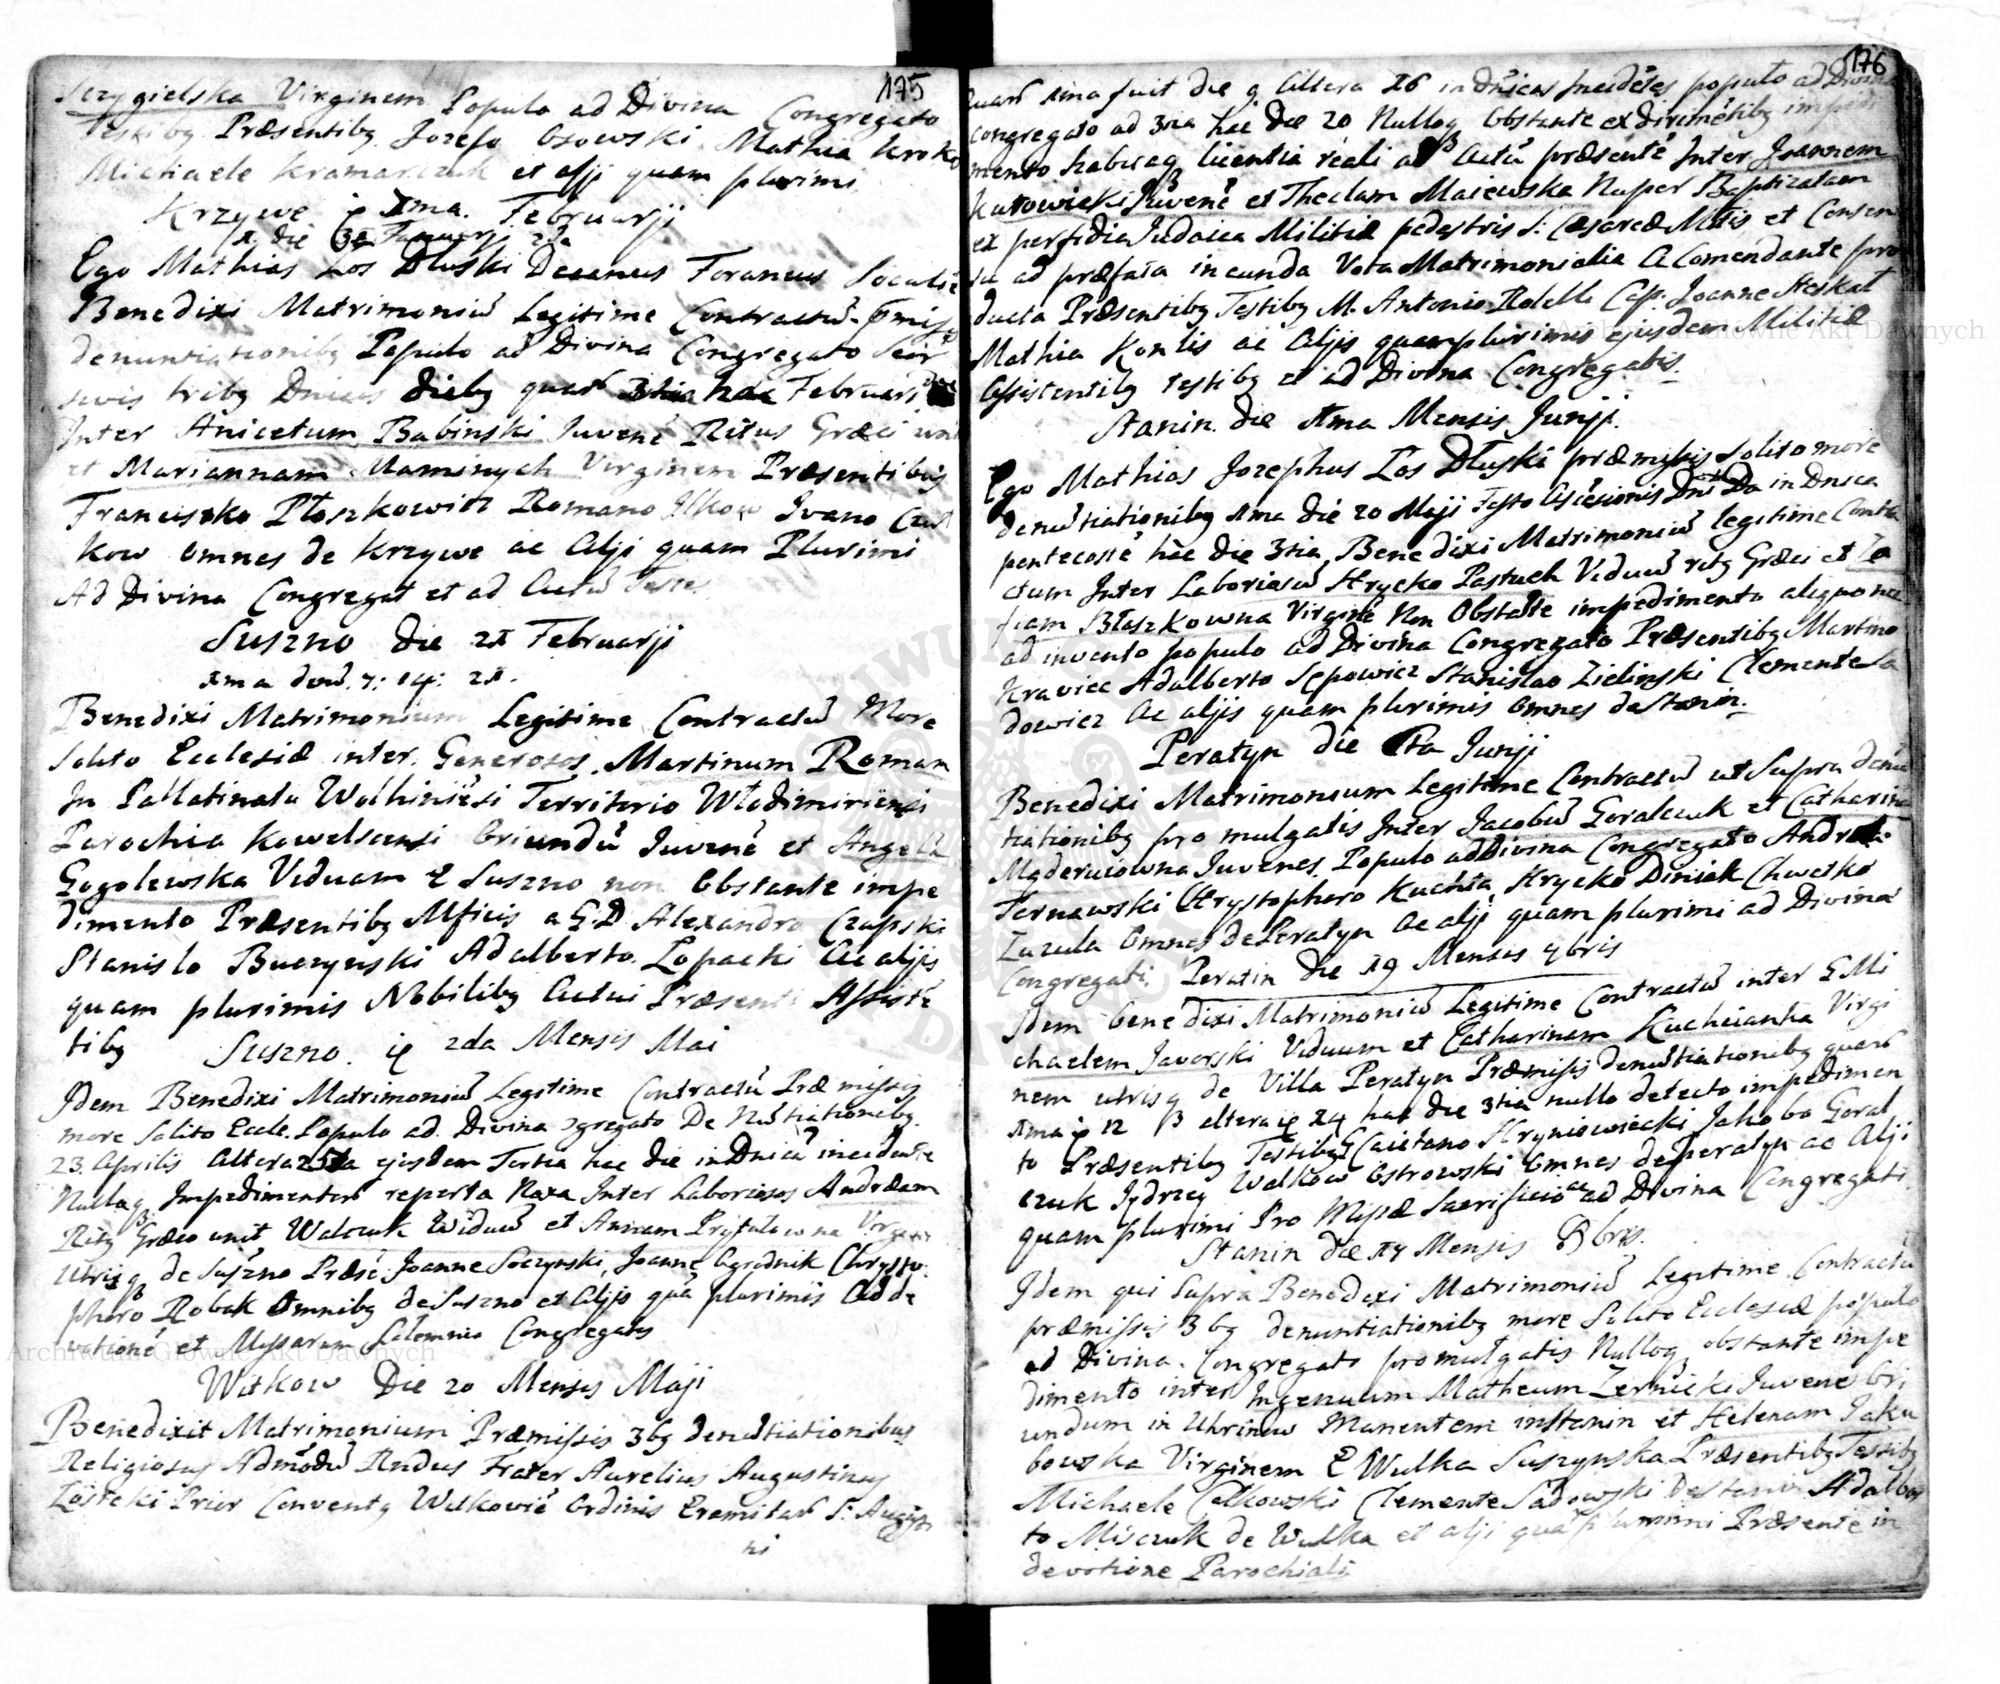 175
Strzygielska Virginem Populo ad Divina Congregato
Testibg Præsentibg Jozefo Osowski Mathia Kroko
Michaele Kramarczuk et alji quam plurimi
Krzywe 1ma Februarji
die Januarj 2da
Ego Mathias Los Dłuski Decanus Foraneus Socalie
Benedixi Matrimoniū Legitime Contractū
denuntiationibg Populo ad Divina Congregato
tribg Dnicis diebg quar 3tia hac Februarj
Inter Anicetum Babinski Juvenē Ritus Græci uni
et Mariannam Virginem Præsentibus
Francisko Płoszkowicz Romano Ilkow Ivano
kow omnes de Krzywe ac alji quam Plurimi
Ad Divina Congregat et ad Actū Testes
Suszno die 21 Februarji
1ma dnū. 7: 14: 21.
Benedixi Matrimonium Legitime Contractū More
Solito Ecclesiæ inter Generosos Martinum Roman
In Pallatinatu Wolhiniēsi Territorio Włodimiriensi
Parochia Kowelsensi Oriundū Juvenē et Angela
Gogolewska Viduam E Suszno non Obstante impe
dimento Præsentibg Mficis a G.D Alexandro Czapski
Stanislo Buczynski Adalberto Lopacki Ac aljis
quam plurimis Nobilibg Actui Præsenti Assistē
tibg Suszno 2da Mensis Mai
Idem Benedixi Matrimoniū Legitime Contractū Præmissis
more Solito Eccle. Populo ad Divina gregato De Nūtiationibg
23 Aprilis altera ejusdem Tertia hac die in Dnica incidente
Nulloq Impedimenton reperta Noxa Inter Laboriosos Andream
Ritg Græco unit Walczuk Widuū et Annam Virginem
Utrisq de Suszno Præsē Joanne Soczynski, Joanne Ogrodnik Chrysto
phoro Robak Omnibg de Suszno et Aljis quā plurimis Ad de
votionē et Myssarum Solemnia Congregatis
Witkow Die 20 Mensis Maji
Benedixit Matrimonium Præmissis 3bg denūtiationibus
Religiosus Admōdū Rndus Frater Aurelius Augustinus
Prior Conventg Witkoviē Ordinis Eremitar S: Augusti
ni
176
quar 1ma fuit die 9 altera 16 in dnicas incidētes populo ad Divina
congregato ad 3tia hac die 20 Nulloq Obstante ex dirimētibg impedi
mento habitaq licentia reali ad Actū præsentē Inter Joannem
Kutowicki Juvenē et Theclam Maiewska Nuper Baptizatam
ex perfidia Judaica Militiæ pedestris S: Cæsareæ Mttis et Consen
su ad præfata ineunda Vota Matrimonialia A Comendante pro
ducta Præsentibg Testibg M. Antonio Rolelli Cap. Joanne Heskal
Mathia Konlis ac Aljis quamplurimis ejusdem Militiæ
Assistentibg testibg et ad Divina Congregatis.
Stanin die 1ma Mensis Junji
Ego Mathias Josephus Los Dłuski præmissis solito more
denūtiationibg 1ma die 20 Maji Festo Ascēsionis Dni 2da in Dnica
pentecostē hac die 3tia Benedixi Matrimoniū legitime Contra
ctum Inter Laboriosū Hrycko Pastuch Viduū ritg Græci et Zo
fiam Błaszkowna Virginē Non Obstāte impedimento aliquo nec
ad invento populo ad Divina Congregato Præsentibg Martino
Kraviec Adalberto Sępowicz Stanislao Zielinski Clemente Sa
dowicz Ac aljis quam plurimis Omnes de Stanin.
Peratyn die Junji
Benedixi Matrimonium Legitime Contractū ut Supra denū
tiationibg pro mulgatis Inter Jacobū Goralczuk et Catharina
Mąderuiowna Juvenes Populo ad Divina Congregato Andrea
Ternawski Chrystophoro Kuchta Hrycko Diniak Chwetko
Zazula Omnes de Peratyn Ac alji quam plurimi ad Divina
Congregati Peratin Die 19 Mensis 7bris
Idem benedixi Matrimoniū Legitime Contractū inter G Mi
chaelem Javorski Viduum et Catharinam Kucheianka Virgi
nem utrisq de Villa Peratyn Præmissis denūtiationibg quar
1ma 12 altera 14 hac die 3tia nullo detecto impedimen
to Præsentibg Testibg G Caietano Hryniewiecki Jakobo Goral
czuk Jędrzey Walkow Ostrowski Omnes de Peratyn ac Alji
quam plurimi Pro Missæ Sacrificio ac ad Divina Congregati
Stanin die 14 Mensis 8bris
Idem qui Supra Benedixi Matrimoniū Legitime Contractū
præmissis 3bg denuntiationibg more Solito Ecclesiæ populo
ad Divina Congregato promulgatis Nulloq obstante impe
dimento inter Ingenuum Matheum Zernicki Juvene Ori
undum in Uhrinow Manentem in Stanin et Helenam Jaku
bowska Virginem E Wulka Suszynska Præsentibg Testibg
Michaele Całkowski Clemente Sadowski De Stanin Adalber
to Misczuk de Wulka et alji quā plurimi Præsente in
devotione Parochiali
Archiwum Główne Akt Dawnych
Archiwum Główne Akt Dawnych